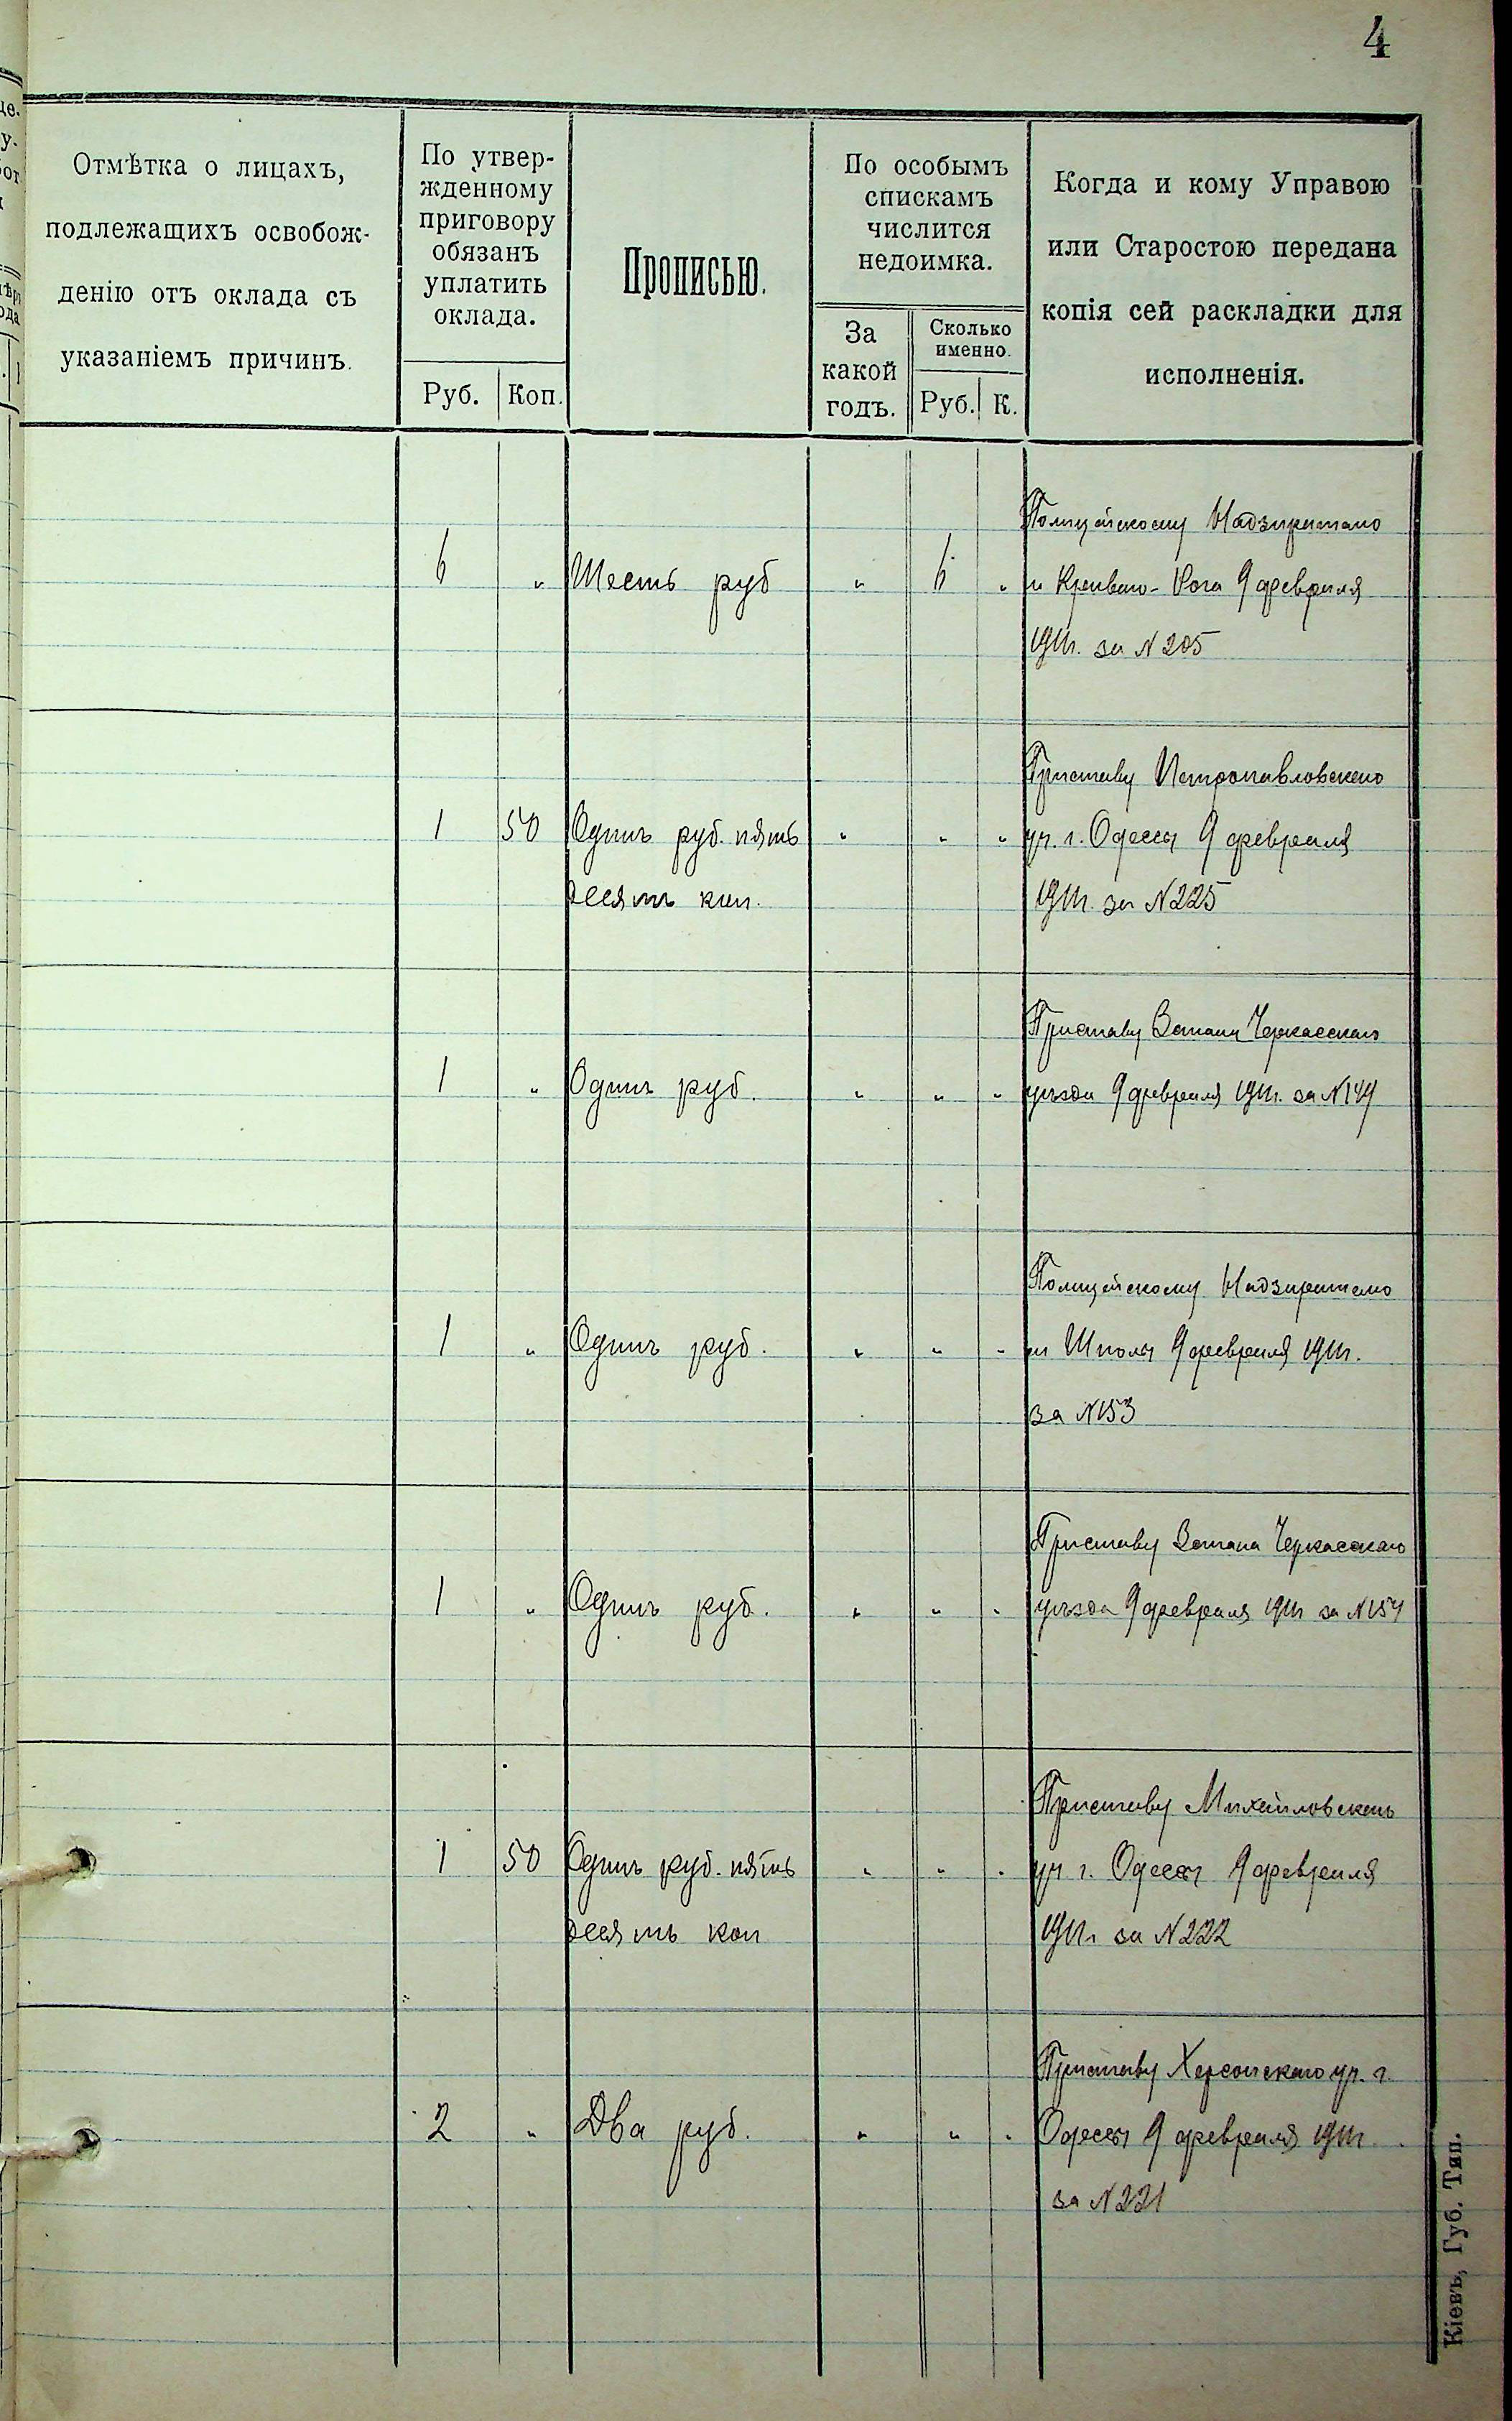 4
Отмѣтка о лицахъ,
подлежащихъ освобож-
денію отъ оклада съ
указаніемъ причинъ.
По утвер-
жденному
приговору
обязанъ
уплатить
оклада.
Руб. Коп.
Прописью.
По особымъ
спискамъ
числится
недоимка.
За
какой
годъ.
Сколько
именно.
Руб. К.
Когда и кому Управою
или Старостою передана
копія сей раскладки для
исполненія.
Полицейскому Надзирателю
6 " Шесть руб " 6 " м Кривого-Рога 9 февраля
1911г. за N 205
Приставу Петропавловскаго
1 50 Одинъ руб. пять " " " уч. г. Одессы 9 февраля
десятъ коп. 1911г. за N 225
Приставу 2 стана Черкасскаго
1 " Одинъ руб. " " " уѣзда 9 февраля 1911г. за N 149
Полицейскому Надзирателю
1 " Одинъ руб. " " " м Шполы 9 февраля 1911г.
за N 153
Приставу 2 стана Черкасскаго
1 " Одинъ руб. " " " уѣзда 9 февраля 1911г за N 154
Приставу Михайловскаго
1 50 Одинъ руб. пять " " " уч г. Одессы 9 февраля
десять коп 1911г. за N 222
Приставу Херсонскаго уч. г.
2 " Два руб. " " " Одессы 9 февраля 1911г.
за N 221
Кіевъ, Губ. Тип.